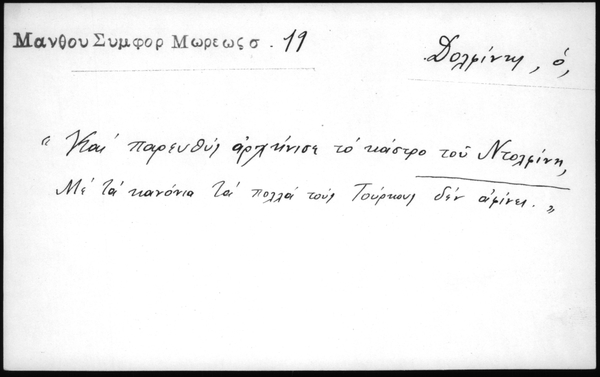 Μανθου Συμφορ Μωρεως σ. 19
Δολφίνης, ὁ,
"Καί παρευθύς ἀρχήνισε τό κάστρο τοῦ Ντολφίνη,
Μέ τά κανόνια τά πολλά τούς Τούρκους δέν ἀφίνει."